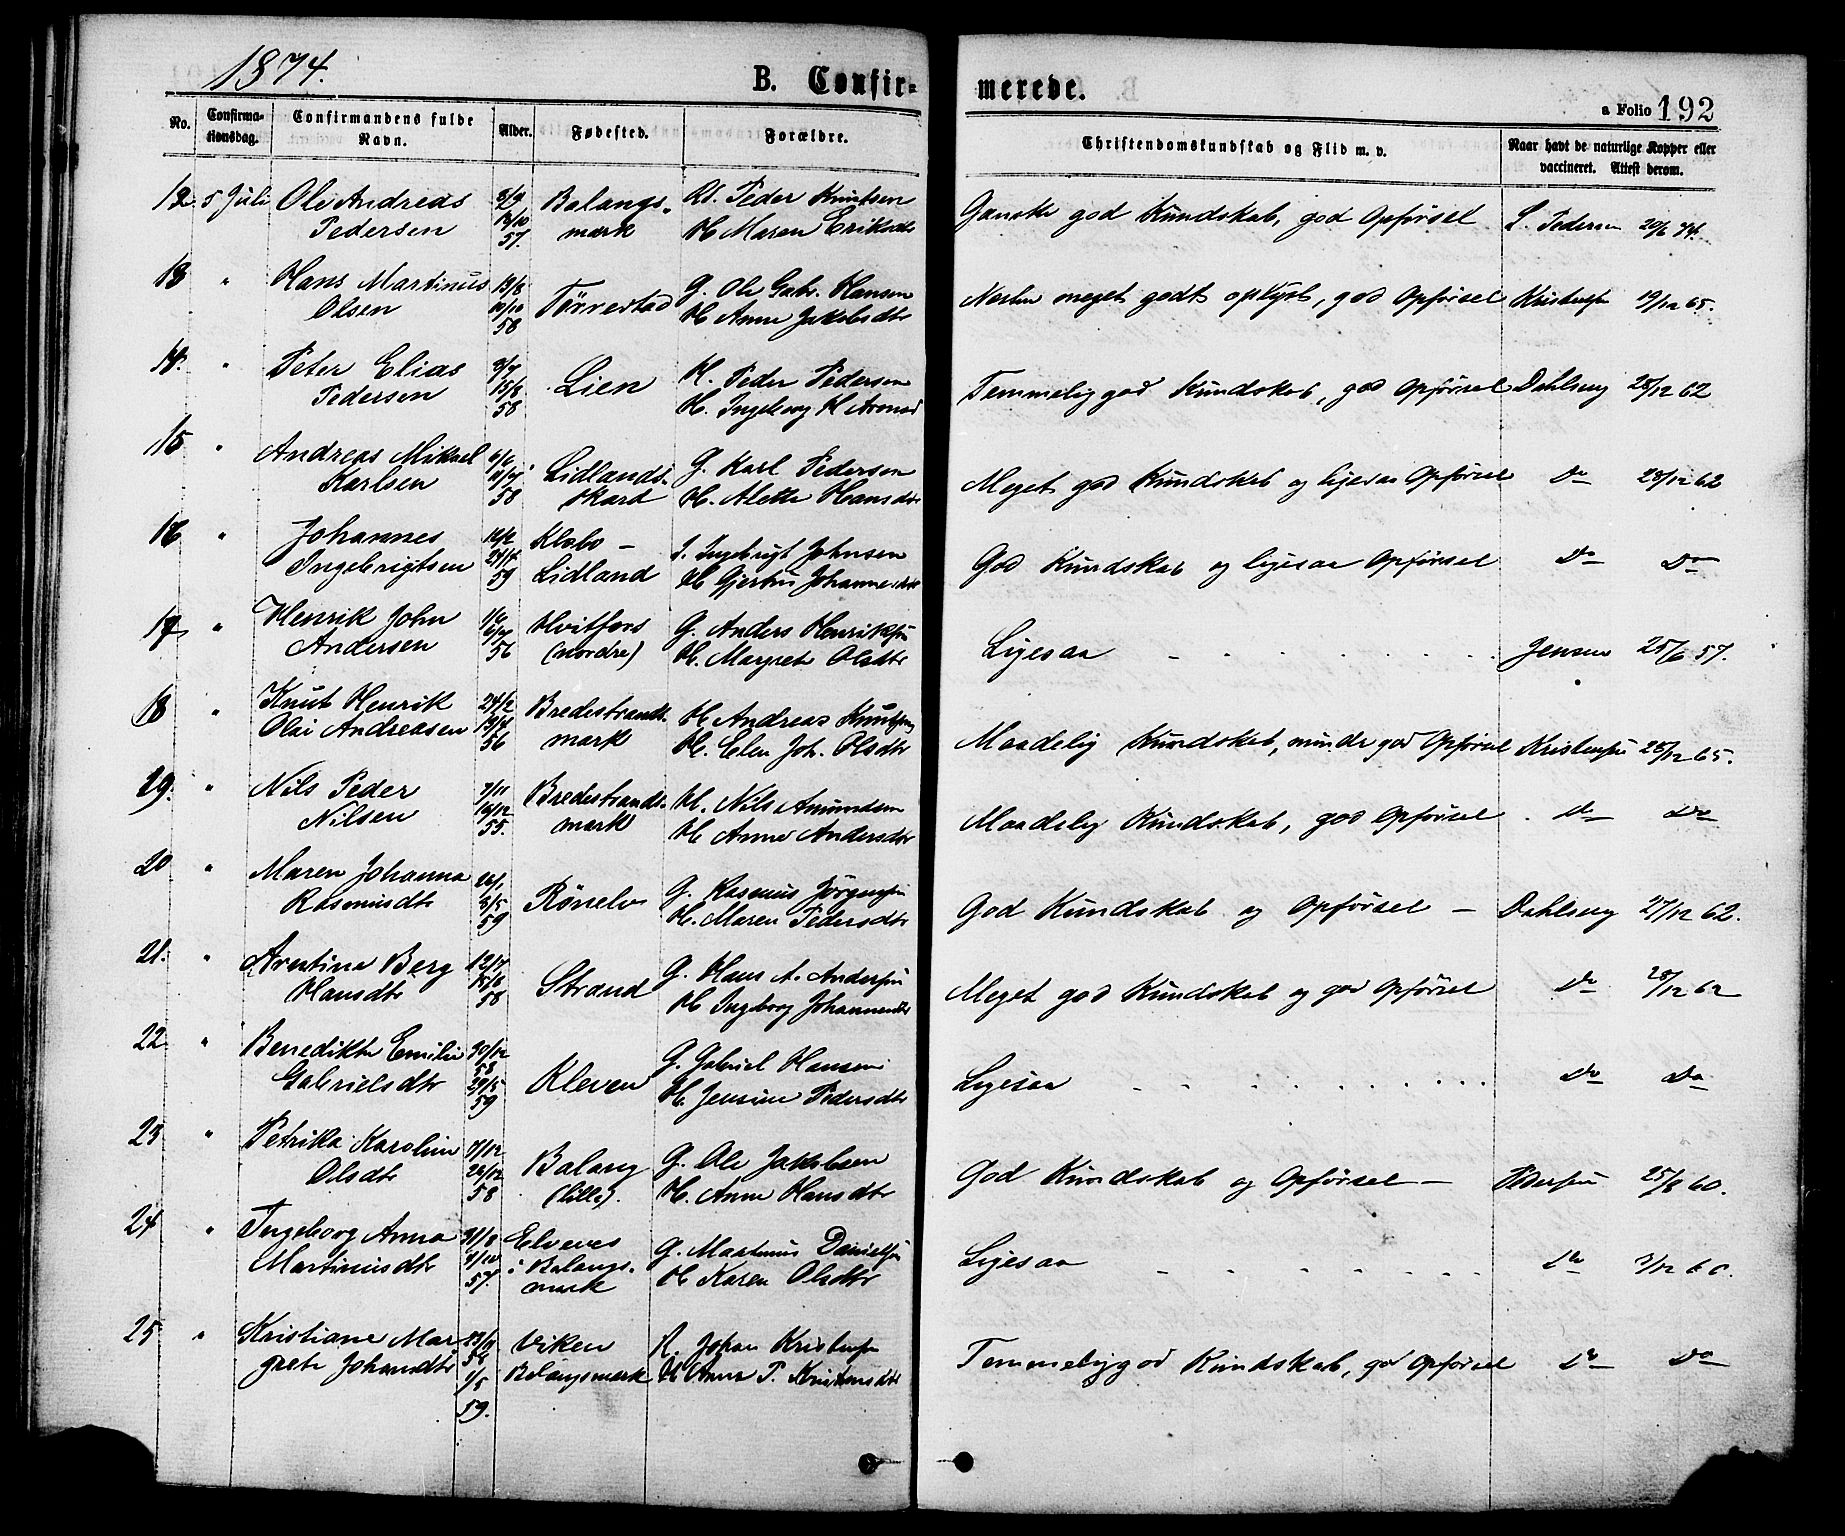 1874.
B. Confir-
merede.
a Folio 192
No. Confirma-tionsdag. Confirmandens fulde Navn. Alder. Fødested. Forældre. Christendomskundskab og Flid m. v. Naar havt de naturlige Kopper eller vaccineret. Attest derom.
12 5 Juli Ole Andreas Balangs- Peder Knutsen Ganske god Kundskab, god Opførsel Pedersen 20/6 74.
Pedersen 57. mark H Maren Eriksdtr
13 " Hans Martinus 13/8 Tørrestad G. Ole Gabr. Hansen Næsten meget godt oplyst, god Opførsel Kristensen 19/12 65.
Olsen 10/10 58 H Anne Jakobsdtr
14. " Peter Elias Lien H. Peder Pedersen Temmelig god Kundskab, god Opførsel Dahlseng 28/12 62
Pedersen 15/8 58 H. Ingeborg H
15 " Andreas Mikael Lidlands- G. Karl Pedersen Meget god Kundskab og ligesaa Opførsel Do 28/12 62
Karlsen 11/7 58 skard H. Alette Hansdtr
16 " Johannes Klæbo - Ingebrigt Johnsen God Kundskab og ligesaa Opførsel Do Do
Ingebrigtsen 59 Lidland H Gjertru Johannesdtr
17 " Henrik John Hvitfors G. Anders Henriksen Ligesaa Jensen 25/6 57.
Andersen 56 (nordre) H. Margrete Olsdtr
18 " Knut Henrik 24/2 Bredestrands- H. Andreas Knutsen Maadelig Kundskab, mindre god Opførsel Kristensen 28/12 65.
Olai Andreasen 19/4 56 mark H. Elen Joh. Olsdtr
19. " Nils Peder 7/11 Bredestrands- H. Nils Amundsen Maadelig Kundskab, god Opførsel Do Do
Nilsen 16/12 55. mark H Anne Andersdtr
20 " Maren Johanna 26/1 Rønelv G. Rasmus Jørgensen God Kundskab og Opførsel - Dahlseng 27/12 62.
Rasmusdtr 8/5 59 H. Maren Pedersdtr
21. " Arntina Berg 12/7 Strand G. Hans A. Andersen Meget god Kundskab og god Opførsel Do 28/12 62
Hansdtr 15/8 58 H Ingeborg Johannesdtr
22 " Benedikte Emilie 30/12 58 Kleven G. Gabriel Hansen Ligesaa Do Do
Gabrielsdtr 29/5 59 H. Jensine Pedersdtr
23 " Petrika Karoline 7/12 Balang G. Ole Jakobsen God Kundskab og Opførsel - Pedersen 25/8 60.
Olsdtr 26/12 58 (lille). H. Anne Hansdtr
24 " Ingeborg Anna 31/8 Elvenes G. Martinus Danielsen Ligesaa Do 7/12 60.
Martinusdtr 11/10 57. i Balangs-mark H Karen Olsdtr
25 " Kristiane Mar- 23/11 58 Viken Johan Kristensen Temmelig god Kundskab, god Opførsel Do Do
grete Johansdtr 1/5 59. Balangsmark H Anne P. Kristensdtr